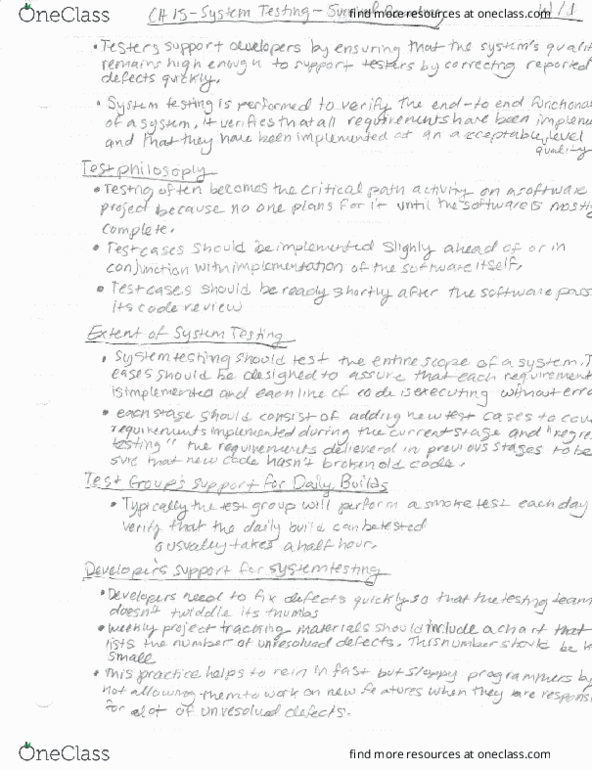 OneClass
CH 15-System Testing-
find more resources at oneclass.com
• Testers support developers by ensuring that the system's qualit
remains high enough to support testers by correcting reported
defects quickly.
• System testing is performed to verify the end-to end functiona
of a system, it verifies that all requirements have been impleme
and that they have been implemented at an acceptable level
quality
Test philosophy
• Testing often becomes the critical path activity on a software
project because no one plans for it until the software is mostl
complete.
• Test cases should be implemented slighly ahead of or in
conjunction with implementation of the software itself.
• Test cases should be ready shortly after the software pass
its code review
Extent of System Testing
• System testing should test the entire scope of a system. T
cases should be designed to assure that each requirement
is implemented and each line of code is executing without erro
• each stage should consist of adding new test cases to cov
requirements implemented during the current stage and "regre
testing" the requirements delieverd in previous stages to be
sure that new code hasn't broken old code.
Test Group's Support for Daily Builds
• Typically the test group will perform a smoke test each day
verify that the daily build can be tested
takes a half hour.
Developer's support for system testing
• Developers need to fix defects quickly so that the testing team
doesn't twiddle its thumbs
• weekly project tracking materials should include a chart that
lists the number of unresolved defects. This number should be k
small
• This practice helps to rein in fast but sloppy programmers by
not allowing them to work on new features when they are responsi
for alot of unresolved defects.
OneClass
find more resources at oneclass.com